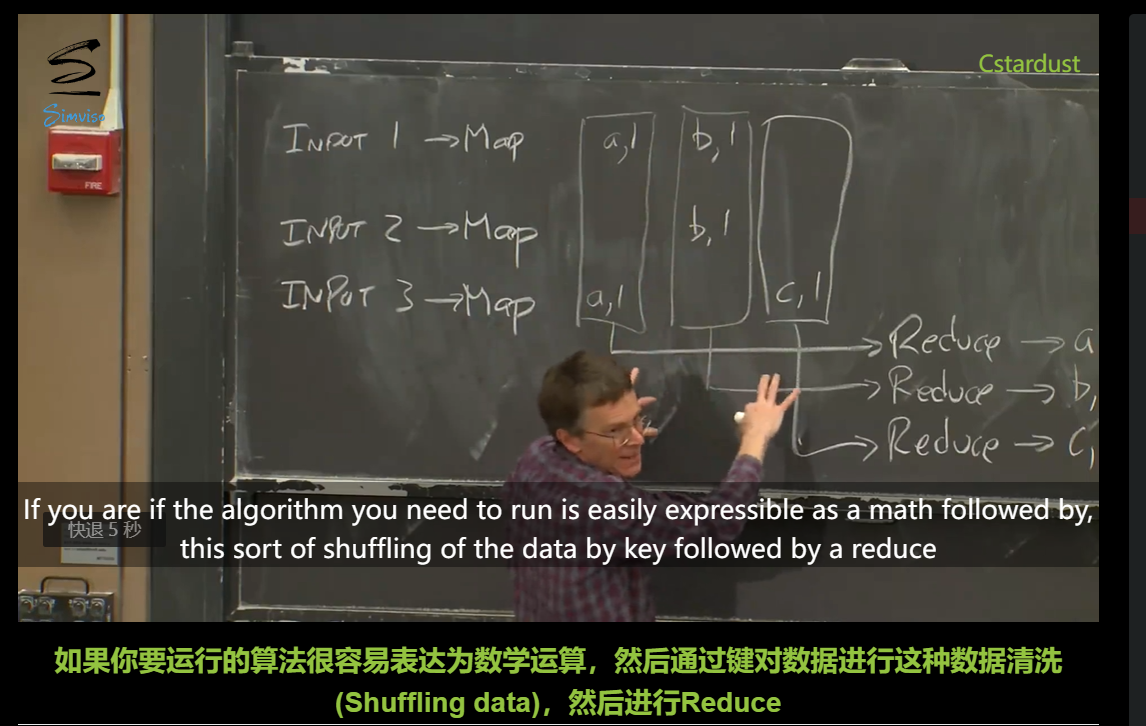 Cstardust
Simviso
FIRE
INPUT 1 → Map
a,1
b,1
INPUT 2 → Map
b,1
INPUT 3 → Map
a,1
c,1
→ Reduce → a
→ Reduce → b,
→ Reduce → c,
If you are if the algorithm you need to run is easily expressible as a math followed by,
快退 5 秒
this sort of shuffling of the data by key followed by a reduce
如果你要运行的算法很容易表达为数学运算，然后通过键对数据进行这种数据清洗
(Shuffling data)，然后进行Reduce